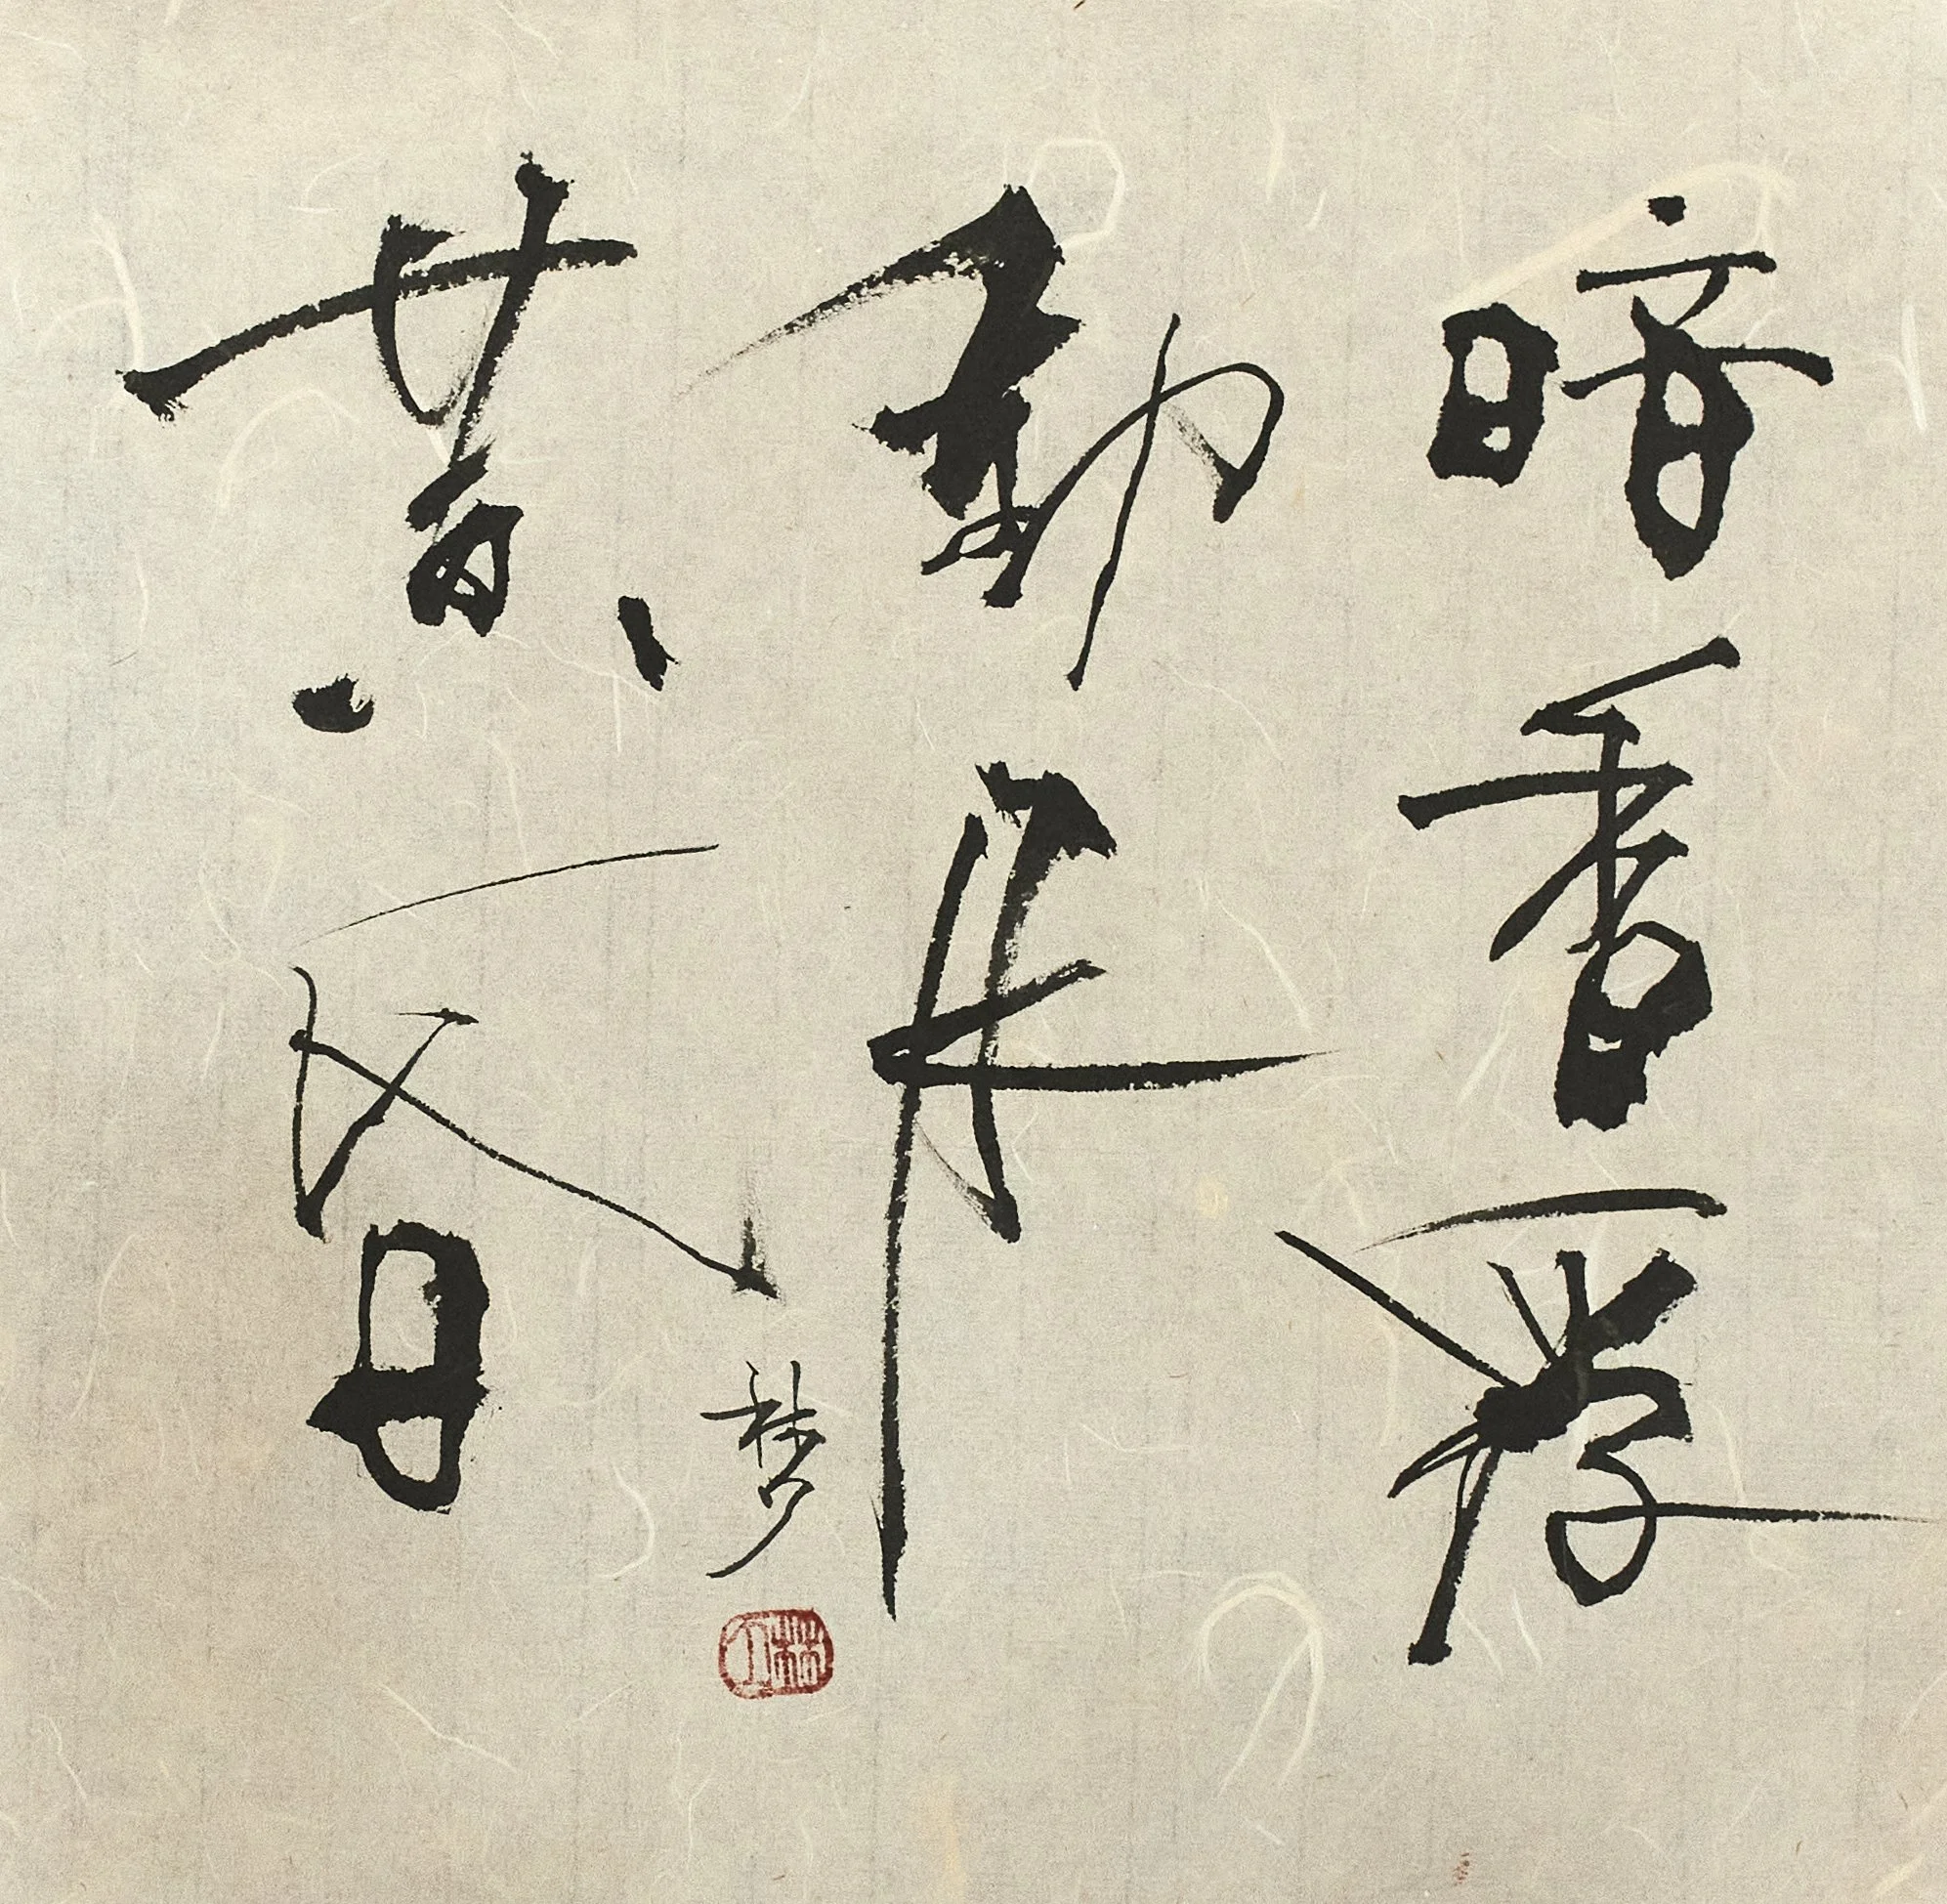 暗香浮
動月
黄昏
梦